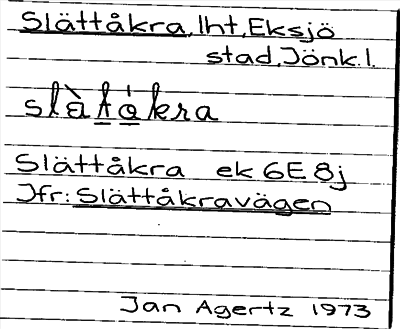 Slättåkra, lht, Eksjö
stad, Jönk. l.
slàt́ó̱kra
Slättåkra ek 6E 8j
Jfr: Slättåkravägen
Jan Agertz 1973